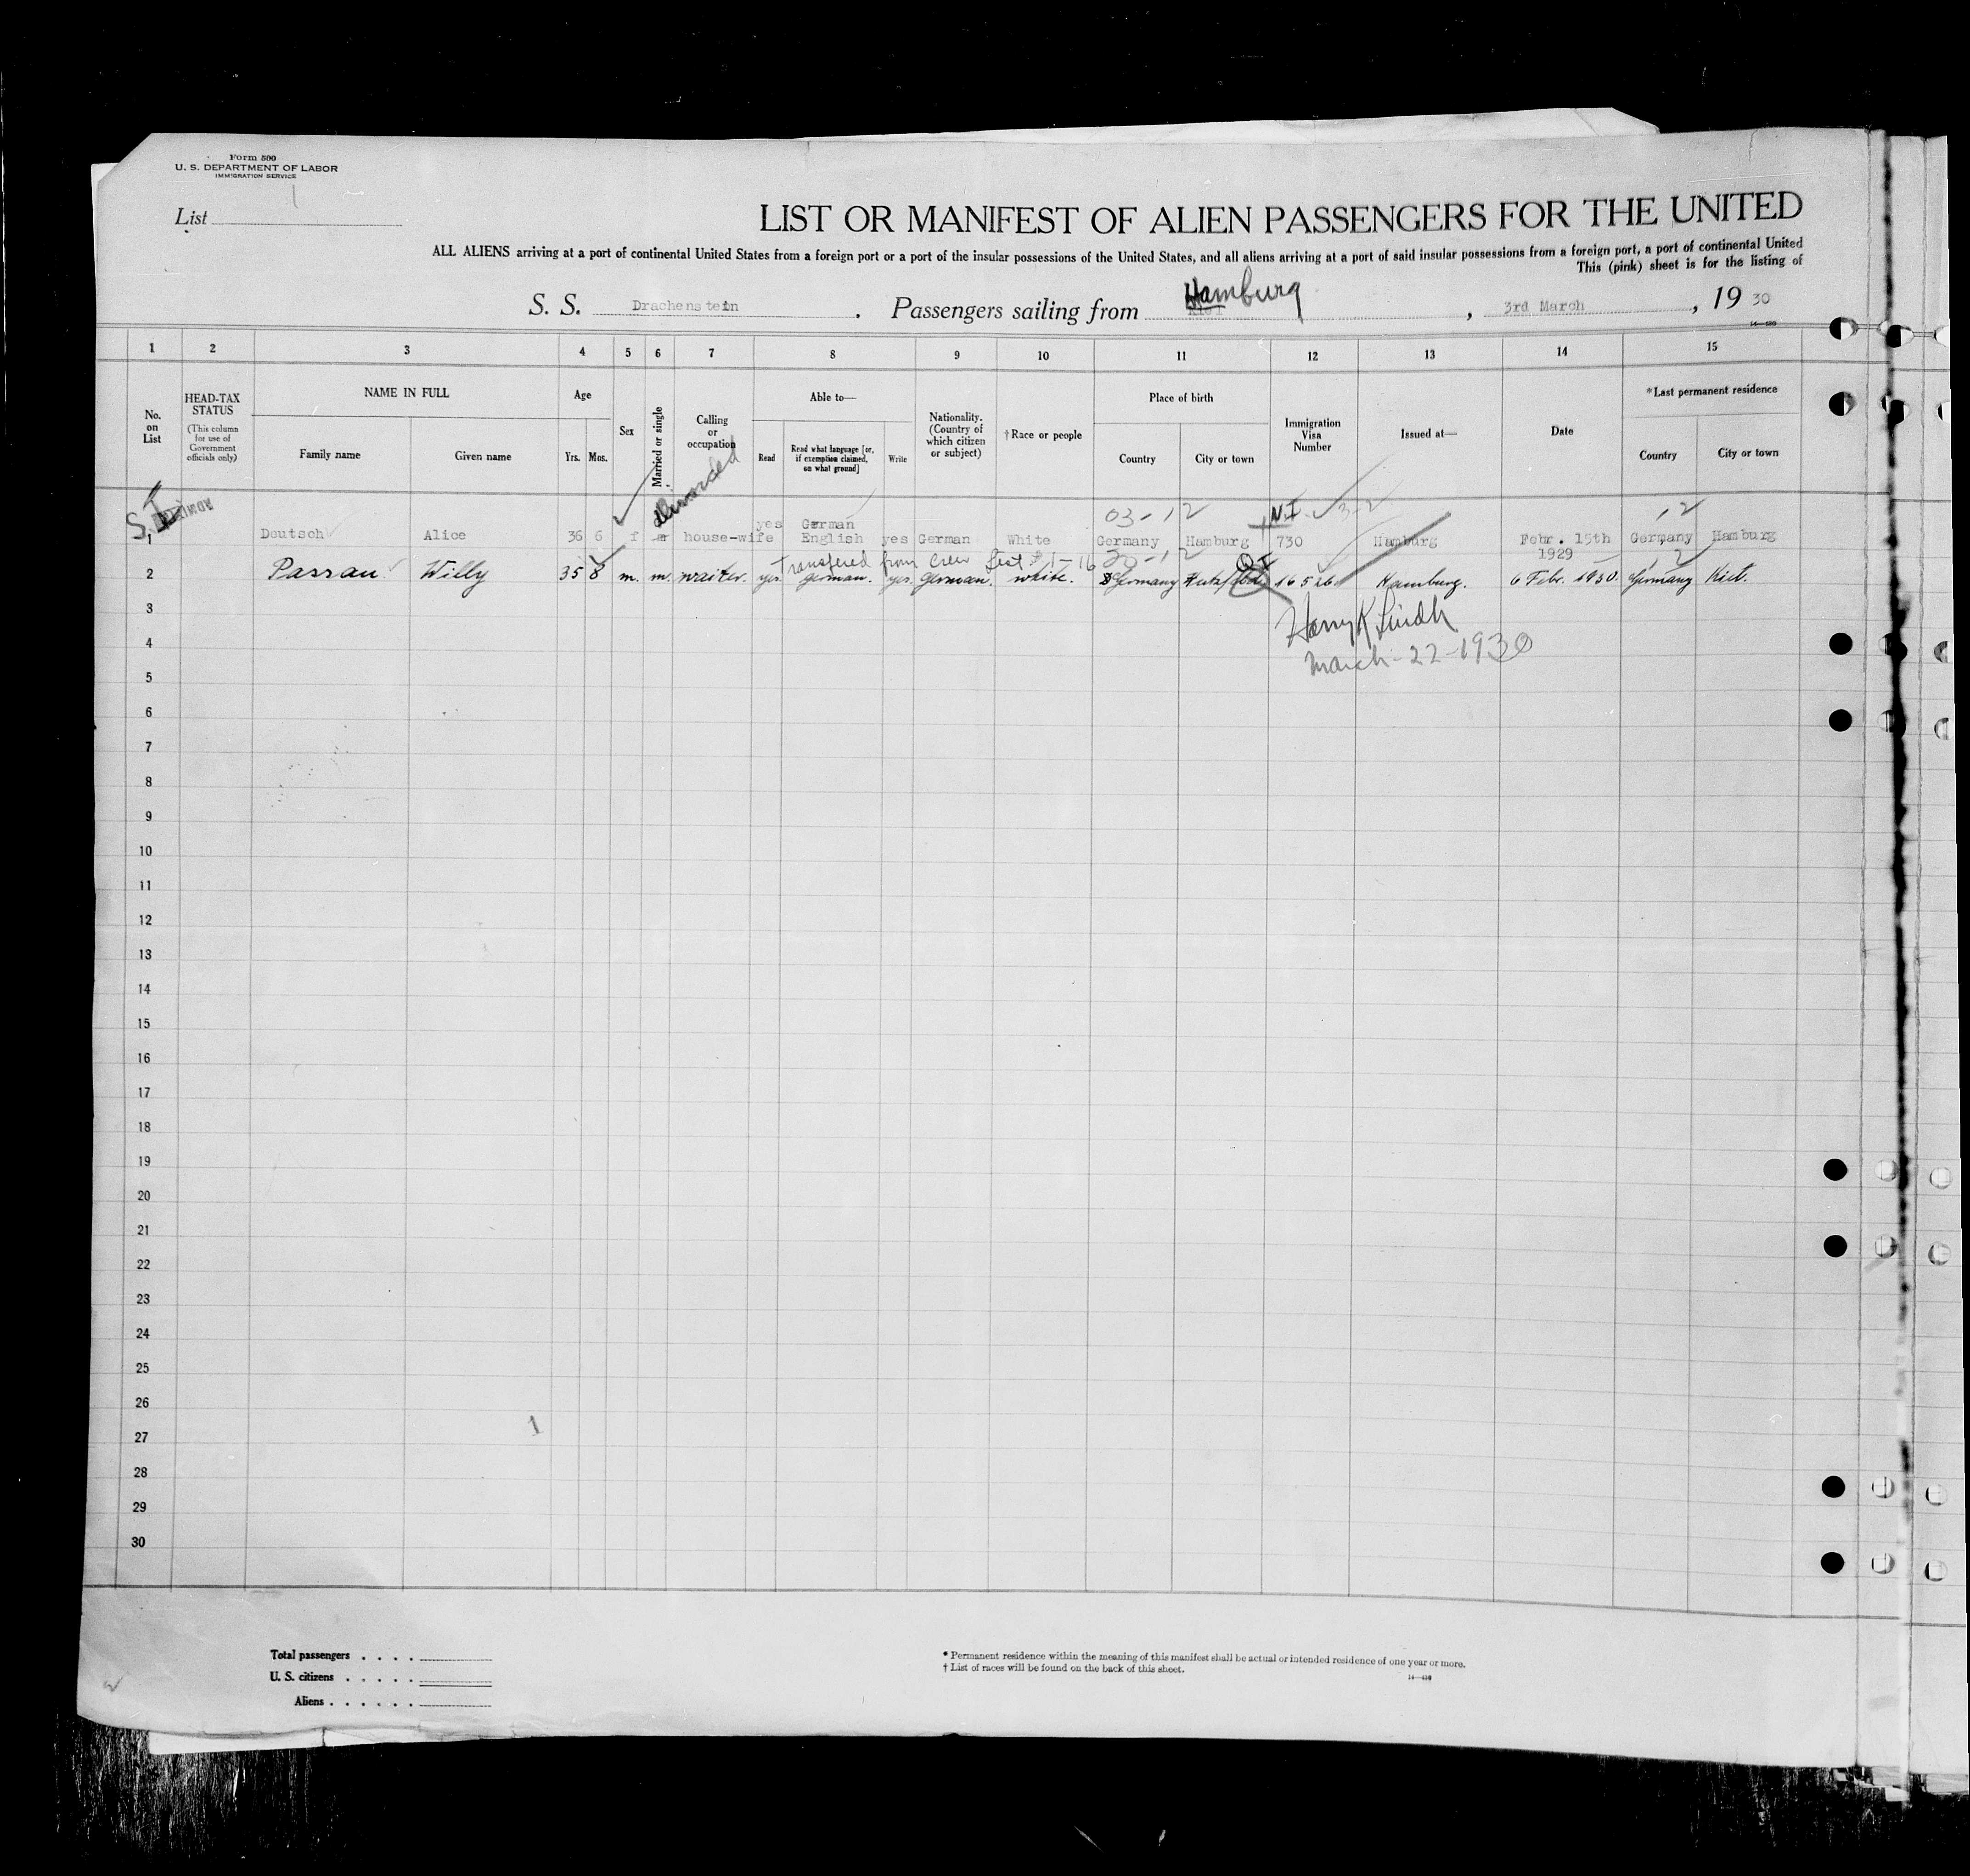 Form 500
U. S. DEPARTMENT OF LABOR
IMMIGRATION SERVICE
List 1
LIST OR MANIFEST OF ALIEN PASSENGERS FOR THE UNITED
ALL ALIENS arriving at a port of continental United States from a foreign port or a port of the insular possessions of the United States, and all aliens arriving at a port of said insular possessions from a foreign port, a port of continental United
This (pink) sheet is for the listing of
S. S. Drachenstein . Passengers sailing from Hamburg , 3rd March , 19 30
14—430
1 2 3 4 5 6 7 8 9 10 11 12 13 14 15
No. on List
HEAD-TAX STATUS
(This column for use of Government officials only)
NAME IN FULL
Family name Given name
Age
Yrs. Mos.
Sex
Married or single
Calling or occupation
Able to—
Read Read what language [or, if exemption claimed, on what ground] Write
Nationality. (Country of which citizen or subject)
†Race or people
Place of birth
Country City or town
Immigration Visa Number
Issued at—
Date
*Last permanent residence
Country City or town
divorced
S.I.
03-12 N.I. 3-2 12
1 Deutsch Alice 36 6 f house-wife yes German English yes German White Germany Hamburg 730 Hamburg Febr. 15th 1929 Germany Hamburg
Transfered from Crew List #1-16 12
2 Passau Willy 35 8 m. m. waiter. yes. german. yes. german. white. Germany QI 16526 Hamburg. 6 Febr. 1930. Germany Kiel.
Harry K Lindh
March-22-1930
3
4
5
6
7
8
9
10
11
12
13
14
15
16
17
18
19
20
21
22
23
24
25
26
1
27
28
29
30
Total passengers . . . .
U. S. citizens . . . . .
Aliens . . . . . .
* Permanent residence within the meaning of this manifest shall be actual or intended residence of one year or more.
† List of races will be found on the back of this sheet.
14—430